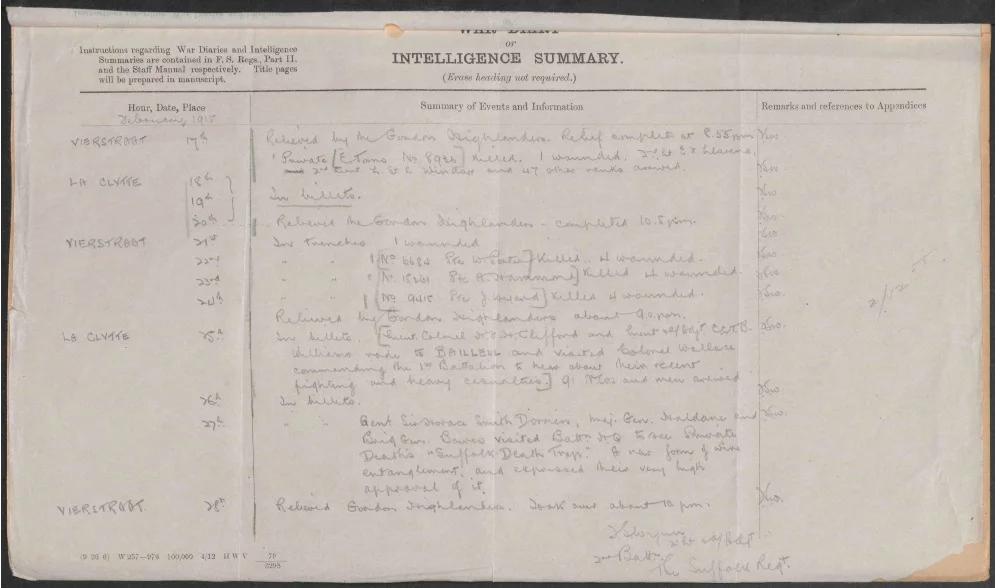 WAR DIARY
or
INTELLIGENCE SUMMARY.
(Erase heading not required.)
Instructions regarding War Diaries and Intelligence
Summaries are contained in F. S. Regs., Part II.
and the Staff Manual respectively. Title pages
will be prepared in manuscript.
Hour, Date, Place
Summary of Events and Information
Remarks and references to Appendices
February 1915
VIERSTRAAT 17th Relieved by the Gordon Highlanders. Relief complete at 8.55pm
1 Private [E. No. 8926] Killed. 1 wounded. 2nd Lt
2nd Lieut and 47 other ranks arrived.
LA CLYTTE 18th
19th In billets.
20th Relieved the Gordon Highlanders - completed 10.5pm.
VIERSTRAAT 21st In trenches 1 wounded
22nd " " 1 [No 6684 Pte W. ] Killed. 4 wounded.
23rd " " [No. Pte A. Hammond] Killed 4 wounded.
24th " " 1 [No. 9415 Pte J. ] Killed 4 wounded.
Relieved by Gordon Highlanders about 9.0.pm.
LA CLYTTE 25th In billets. [Lieut. Colonel Clifford and Lieut & A/Adjt
Williams rode to BAILLEUL and visited Colonel Wallace
commanding the 1st Battalion to hear about their recent
fighting and heavy casualties.] 91 NCOs and men arrived
26th In billets.
27th " " Genl Sir Horace Smith Dorrien, Maj. Gen. Haldane and
Brig Gen. Bowes visited Battn H Q to see Private
Death's "Suffolk Death Trap." A new form of wire
entanglement, and expressed their very high
approval of it.
VIERSTRAAT. 28th Relieved Gordon Highlanders. Took over about 10 pm.
2/12
2nd Lt A/Adjt
2nd Battn
The Suffolk Regt.
(9 26 6) W 257—976 100,000 4/12 H W V 79/3298